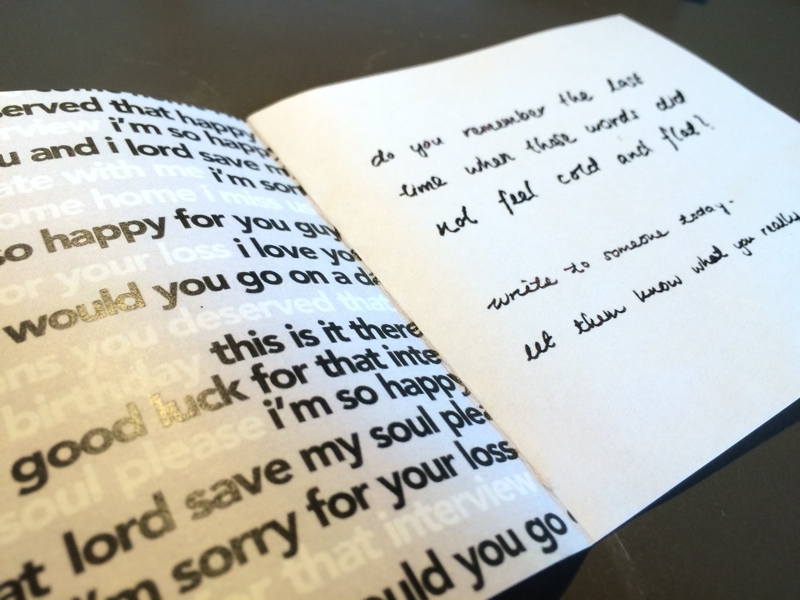 served that happy
rview i'm so happ
u and i lord save m
ate with me i'm sorr
ome home i miss us
so happy for you guy
or your loss i love yo
would you go on a da
ons you deserved that
birthday this is it there
good luck for that inte
soul please i'm so happy
at lord save my soul plea
i'm sorry for your loss
for that interview
ould you go
do you remember the last
time when these words did
not feel cold and flat?
write to someone today.
let them know what you really